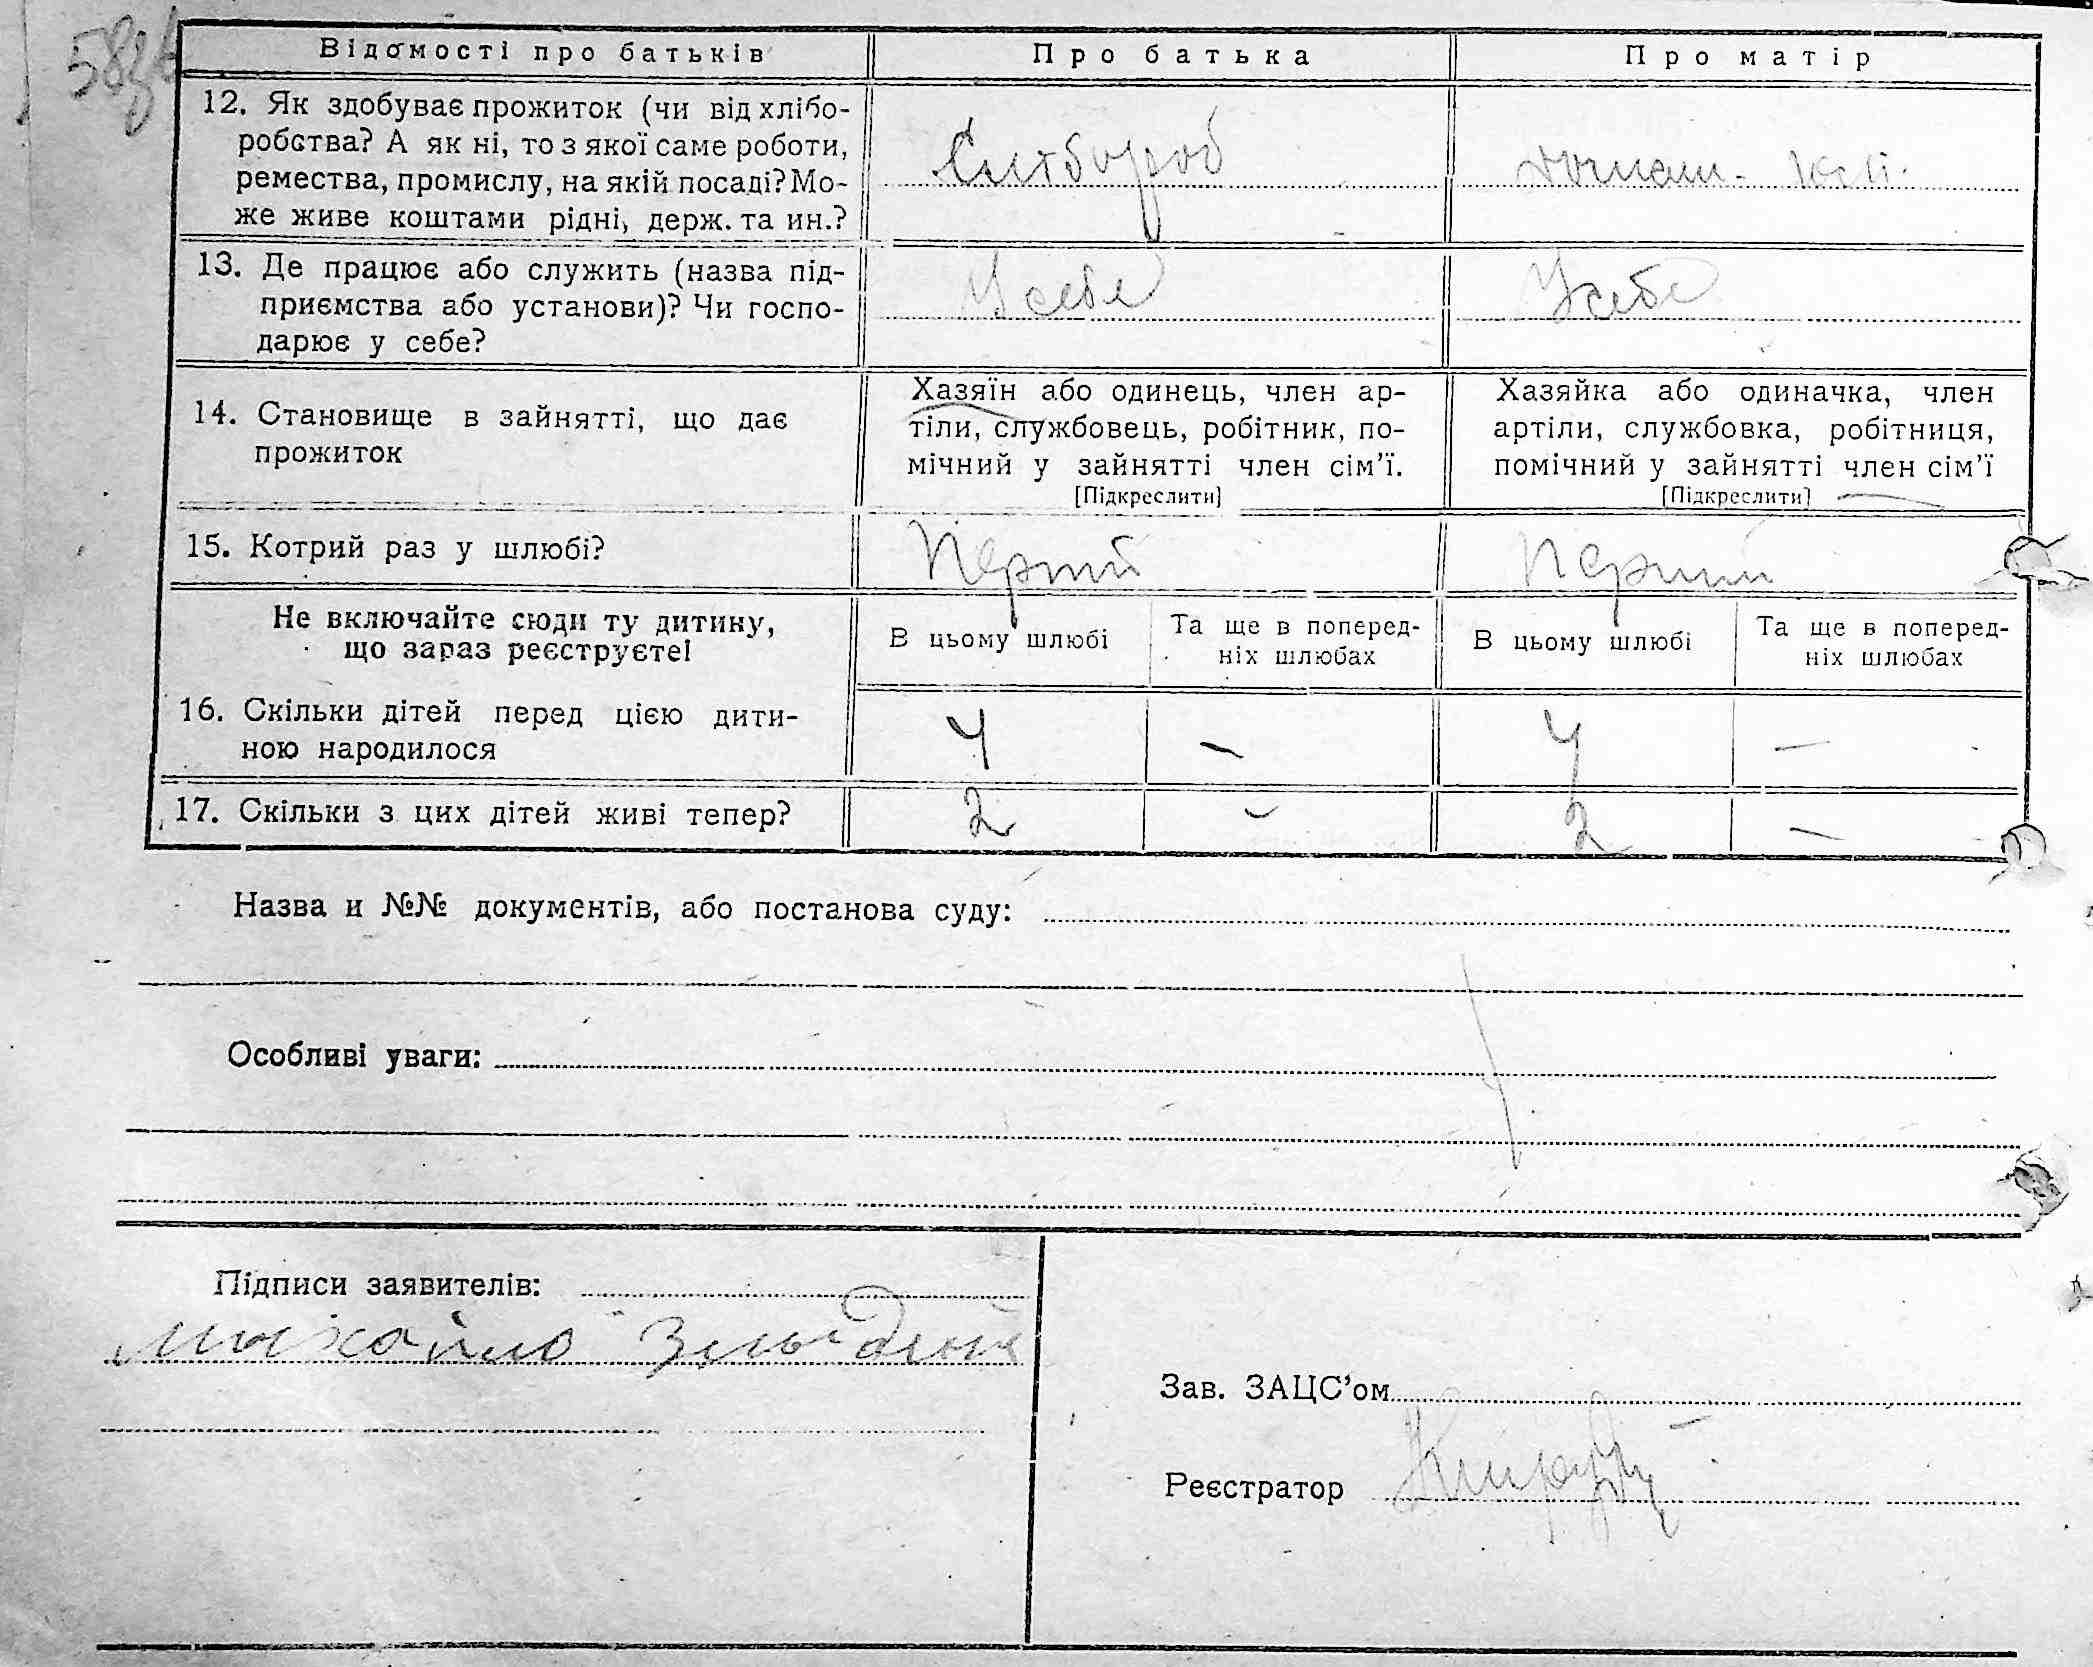 Відомості про батьків
Про батька
Про матір
12. Як здобуває прожиток (чи від хлібо-
робства? А як ні, то з якої саме роботи,
ремества, промислу, на якій посаді? Мо-
же живе коштами рідні, держ. та ин.?
13. Де працює або служить (назва під-
приємства або установи)? Чи госпо-
дарює у себе?
У себе
У себе
14. Становище в зайнятті, що дає
прожиток
Хазяїн або одинець, член ар-
тіли, службовець, робітник, по-
мічний у зайнятті член сім'ї.
[Підкреслити]
Хазяйка або одиначка, член
артіли, службовка, робітниця,
помічний у зайнятті член сім'ї
[Підкреслити]
15. Котрий раз у шлюбі?
Перший
Перший
Не включайте сюди ту дитину,
що зараз реєструєте!
В цьому шлюбі
Та ще в поперед-
ніх шлюбах
В цьому шлюбі
Та ще в поперед-
ніх шлюбах
16. Скільки дітей перед цією дити-
ною народилося
4
–
4
–
17. Скільки з цих дітей живі тепер?
2
–
2
–
Назва и №№ документів, або постанова суду:
Особливі уваги:
Підписи заявителів:
Михайло
Зав. ЗАЦС'ом
Реєстратор